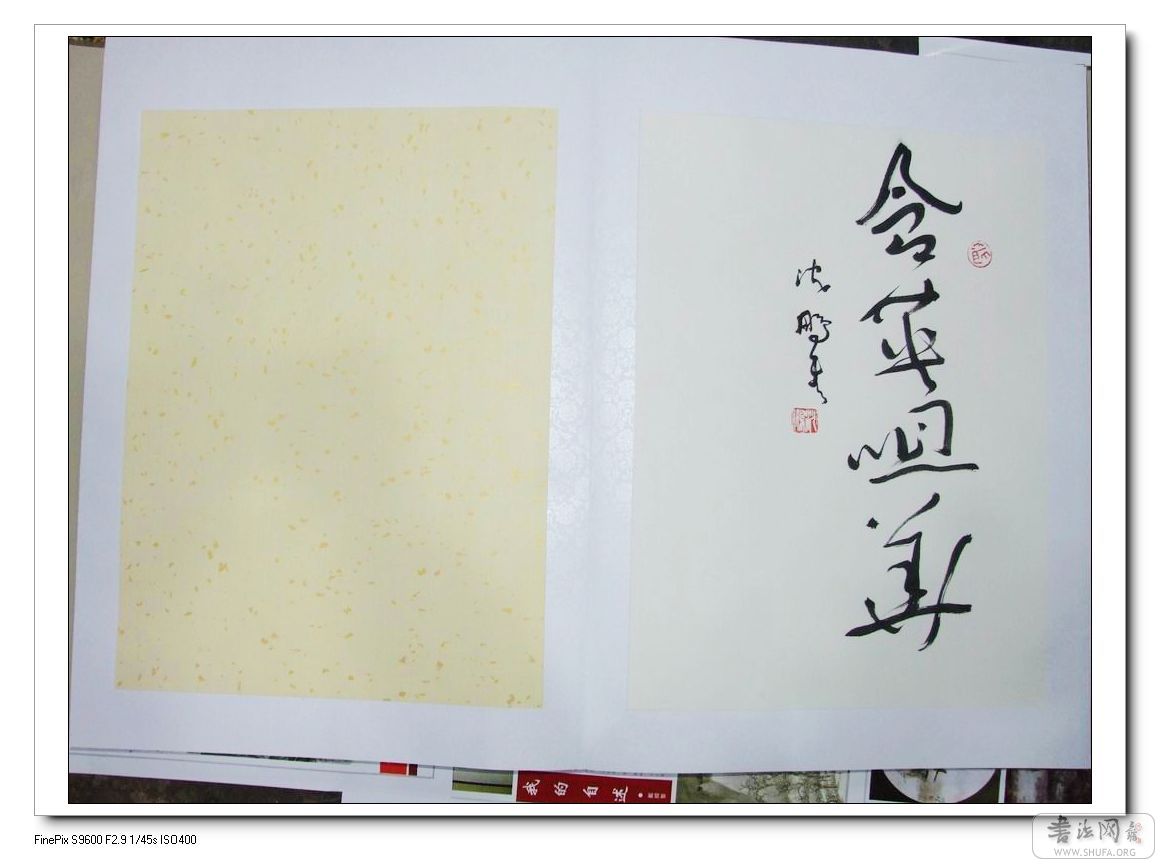 含英咀華
沈鹏书
我的自述
FinePix S9600 F2.9 1/45s ISO400
书法网
WWW.SHUFA.ORG